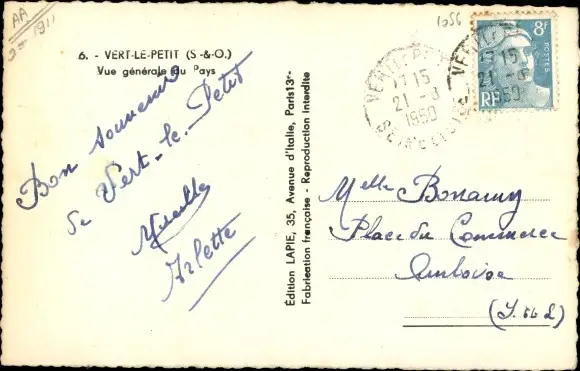 AA
1056
6. - VERT-LE-PETIT (S-&-O.)
Vue générale du Pays
Bon souvenir
de Vert-le-Petit
Mireille
Arlette
Édition LAPIE, 35, Avenue d'Italie, Paris 13e-
Fabrication française - Reproduction Interdite
VERT-LE-PETIT
17 15
21 -8
1950
SEINE ET OISE
8F
POSTES
RF
Melle Bonamy
Place du Commerce
Amboise
(I. et L)